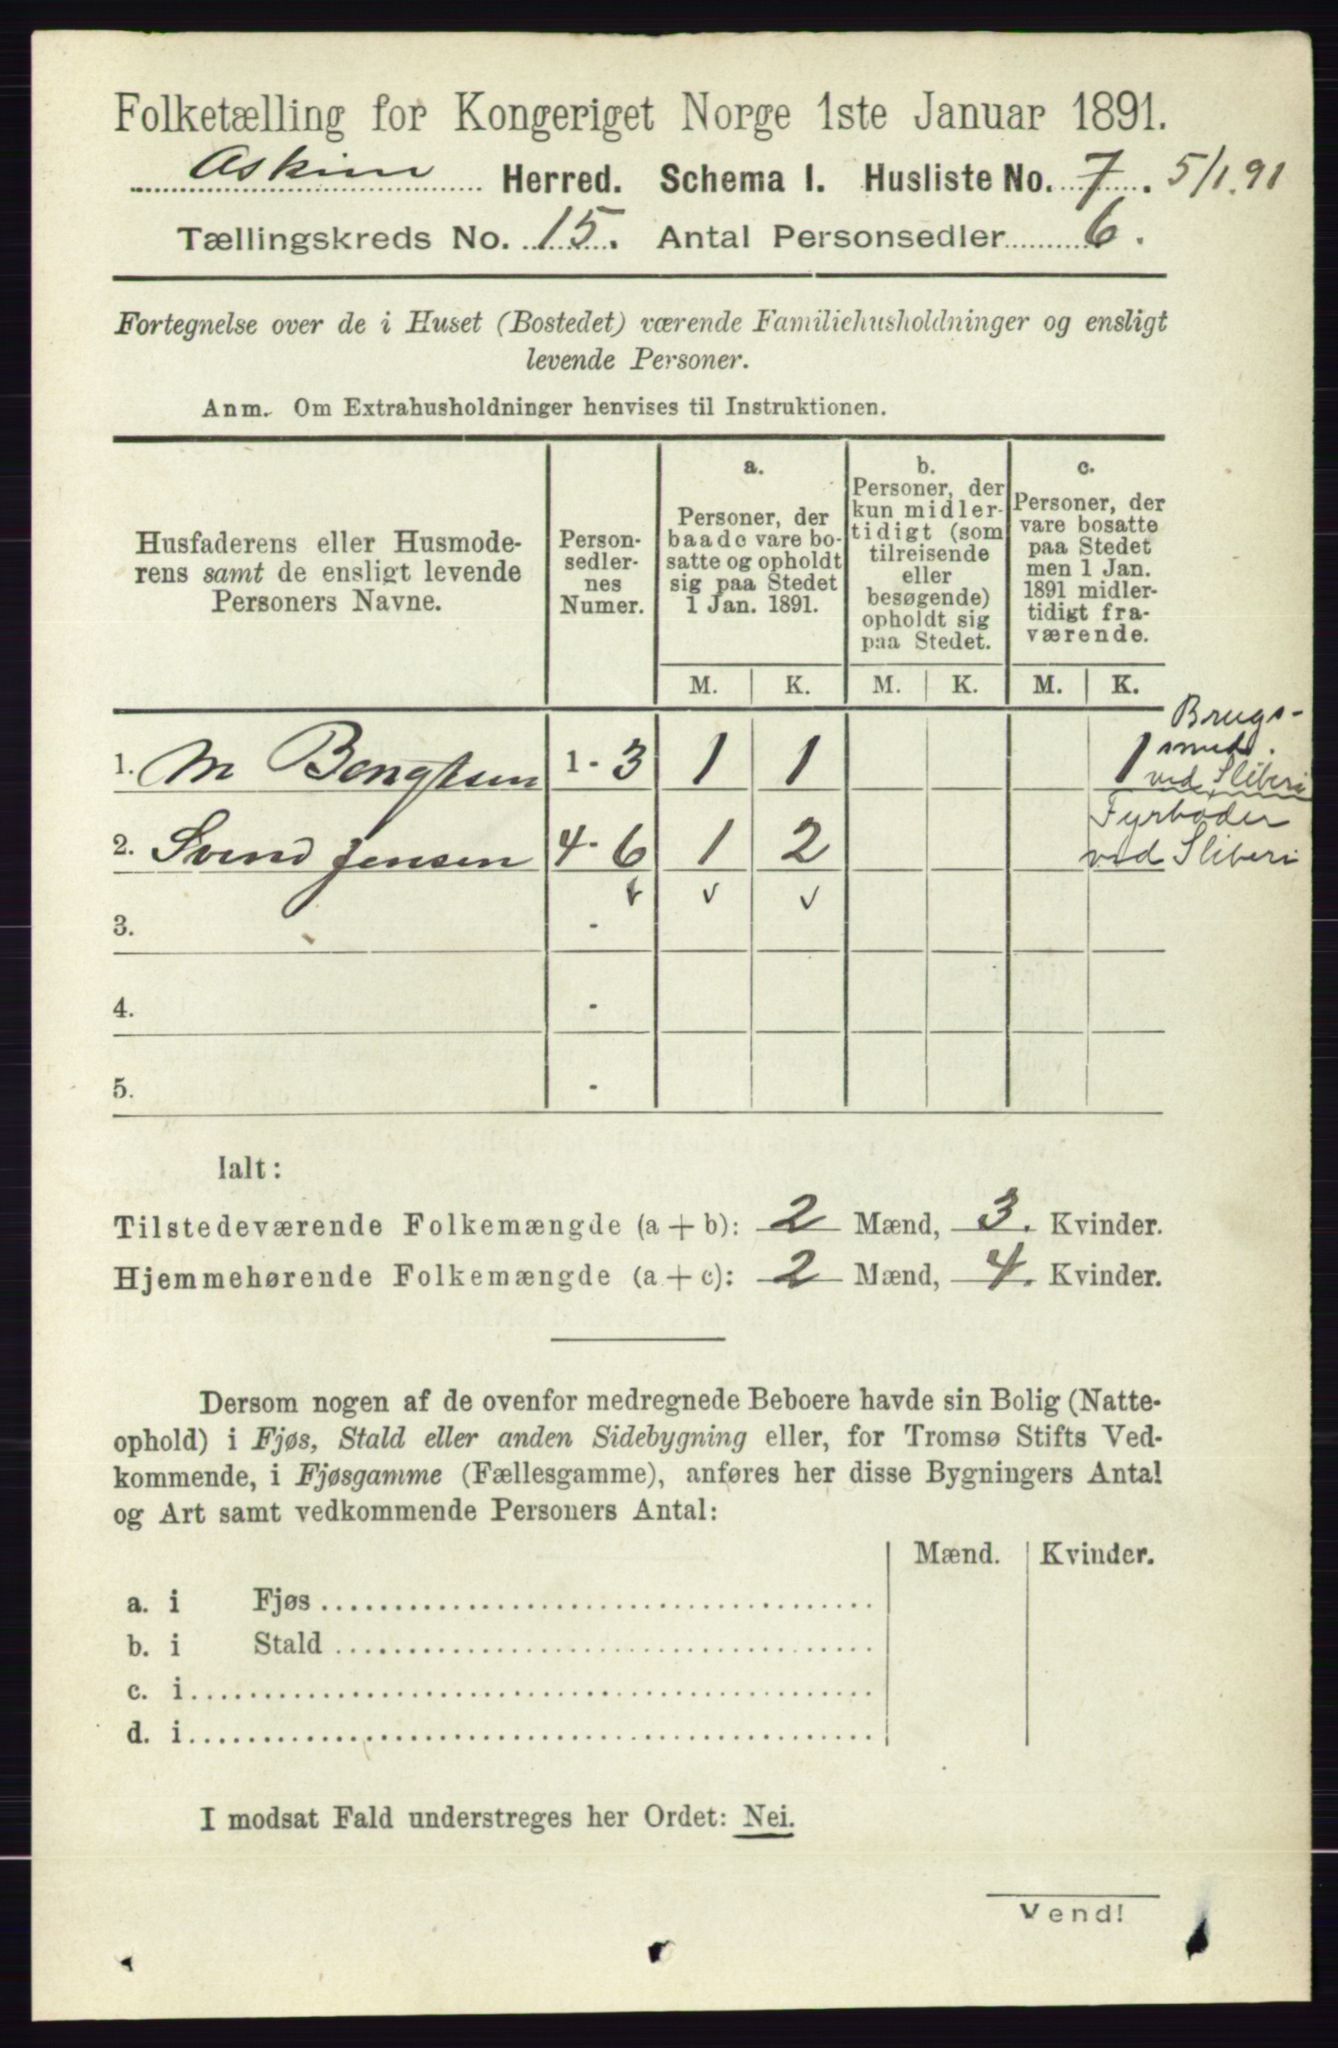 Folketælling for Kongeriget Norge 1ste Januar 1891.
Askim Herred. Schema I. Husliste No. 7. 5/1.91
Tællingskreds No. 15. Antal Personsedler 6.
Fortegnelse over de i Huset (Bostedet) værende Familiehusholdninger og ensligt
levende Personer.
Anm. Om Extrahusholdninger henvises til Instruktionen.
Husfaderens eller Husmode-
rens samt de ensligt levende
Personers Navne.
Person-
sedler-
nes
Numer.
a.
Personer, der
baade vare bo-
satte og opholdt
sig paa Stedet
1 Jan. 1891.
b.
Personer, der
kun midler-
tidigt (som
tilreisende
eller
besøgende)
opholdt sig
paa Stedet.
c.
Personer, der
vare bosatte
paa Stedet
men 1 Jan.
1891 midler-
tidigt fra-
værende.
M. K. M. K. M. K.
1. M Bengtsen 1-3 1 1 1 Brugs-
smed.
ved Sliberi
2. Svend Jensen 4-6 1 2 Fyrbøder
ved Sliberi
3. -
4. -
5. -
Ialt:
Tilstedeværende Folkemængde (a + b): 2 Mænd, 3. Kvinder.
Hjemmehørende Folkemængde (a + c): 2 Mænd, 4. Kvinder.
Dersom nogen af de ovenfor medregnede Beboere havde sin Bolig (Natte-
ophold) i Fjøs, Stald eller anden Sidebygning eller, for Tromsø Stifts Ved-
kommende, i Fjøsgamme (Fællesgamme), anføres her disse Bygningers Antal
og Art samt vedkommende Personers Antal:
Mænd. Kvinder.
a. i Fjøs
b. i Stald
c. i
d. i
I modsat Fald understreges her Ordet: Nei.
Vend!